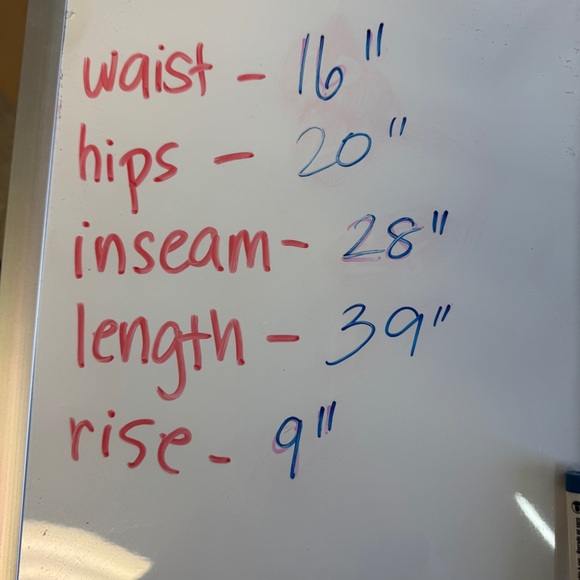 waist - 16"
hips - 20"
inseam - 28"
length - 39"
rise - 9"